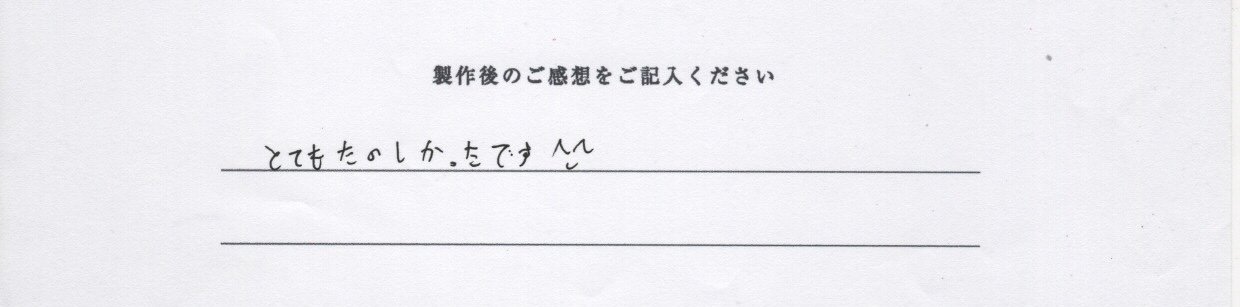 製作後のご感想をご記入ください
とてもたのしかったです ^^